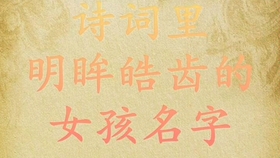 诗词里
明眸皓齿的
女孩名字